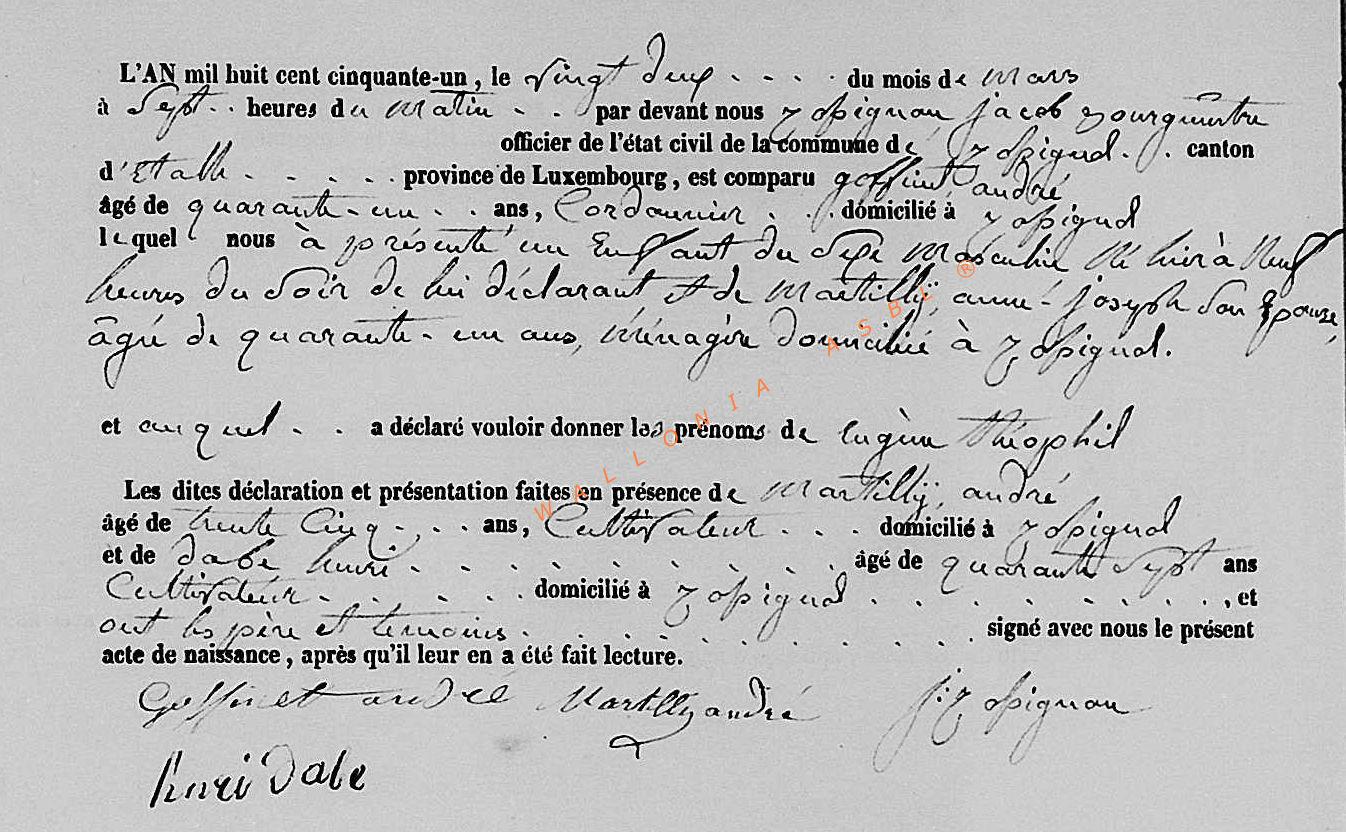 L'AN mil huit cent cinquante-un, le vingt deux . . . . du mois de mars
à Sept . . heures du matin . . par devant nous jacob Bourgumestre
officier de l'état civil de la commune de . . canton
d'Etalle . . . . . province de Luxembourg, est comparu goffinet andré
âgé de quarante-un . . ans, Cordonnier . . . domicilié à
lequel nous à présenté un Enfant du Sexe Masculin Né hier à Neuf
heures du Soir de lui déclarant et de Martillÿ, anne-joseph Son Epouse,
âgée de quarante-un ans, Ménagère domiciliée à
et auquel . . a déclaré vouloir donner les prénoms de Eugène théophil
Les dites déclaration et présentation faites en présence de Martillÿ, andré
âgé de trente Cinq . . . ans, Cultivateur . . . domicilié à
et de dabe henri . . . . . . . . . . âgé de quarante Sept ans
Cultivateur . . . . . domicilié à . . . . . . . . . , et
ont les père et témoins . . . . . . . . . signé avec nous le présent
acte de naissance, après qu'il leur en a été fait lecture.
Goffinet andré Martilly andré
henri Dabe
WALLONIA ASBL ®